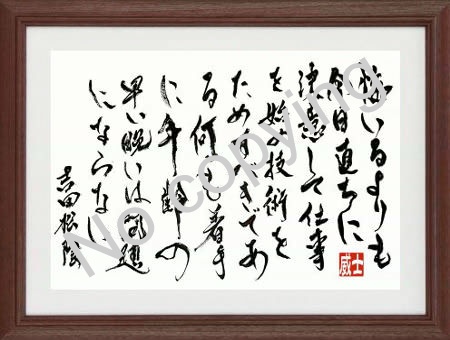 悔いるよりも
今日直ちに
決意して仕事
を始め技術を
ためすべきであ
る何も着手
に年齢の
早い晩いは問題
にならない
吉田松陰
威士
No copying